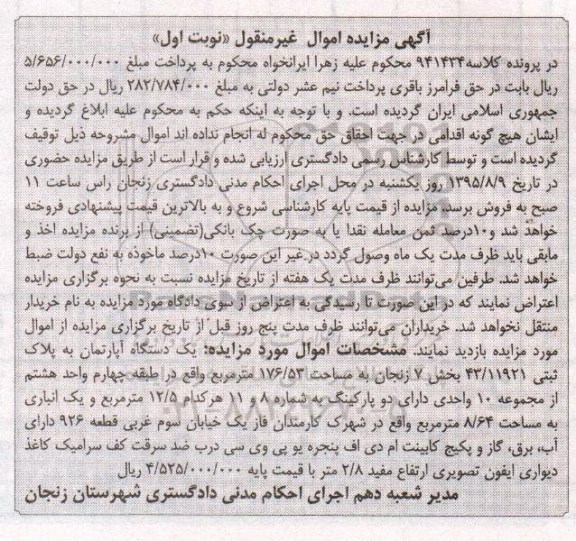 آگهی مزایده اموال غیرمنقول «نوبت اول»
در پرونده کلاسه۹۴۱۴۳۴ محکوم علیه زهرا ایرانخواه محکوم به پرداخت مبلغ ۵/۶۵۶/۰۰۰/۰۰۰
ریال بابت در حق فرامرز باقری پرداخت نیم عشر دولتی به مبلغ ۲۸۲/۷۸۴/۰۰۰ ریال در حق دولت
جمهوری اسلامی ایران گردیده است. و با توجه به اینکه حکم به محکوم علیه ابلاغ گردیده و
ایشان هیچ گونه اقدامی در جهت احقاق حق محکوم له انجام نداده اند اموال مشروحه ذیل توقیف
گردیده است و توسط کارشناس رسمی دادگستری ارزیابی شده و قرار است از طریق مزایده حضوری
در تاریخ ۱۳۹۵/۸/۹ روز یکشنبه در محل اجرای احکام مدنی دادگستری زنجان راس ساعت ۱۱
صبح به فروش برسد. مزایده از قیمت پایه کارشناسی شروع و به بالاترین قیمت پیشنهادی فروخته
خواهد شد و۱۰درصد ثمن معامله نقدا یا به صورت چک بانکی(تضمینی) از برنده مزایده اخذ و
مابقی باید ظرف مدت یک ماه وصول گردد در غیر این صورت ۱۰درصد ماخوذه به نفع دولت ضبط
خواهد شد. طرفین می‌توانند ظرف مدت یک هفته از تاریخ مزایده نسبت به نحوه برگزاری مزایده
اعتراض نمایند که در این صورت تا رسیدگی به اعتراض از سوی دادگاه مورد مزایده به نام خریدار
منتقل نخواهد شد. خریداران می‌توانند ظرف مدت پنج روز قبل از تاریخ برگزاری مزایده از اموال
مورد مزایده بازدید نمایند. مشخصات اموال مورد مزایده: یک دستگاه آپارتمان به پلاک
ثبتی ۴۳/۱۱۹۲۱ بخش ۷ زنجان به مساحت ۱۷۶/۵۳ مترمربع واقع در طبقه چهارم واحد هشتم
از مجموعه ۱۰ واحدی دارای دو پارکینگ به شماره ۸ و ۱۱ هرکدام ۱۲/۵ مترمربع و یک انباری
به مساحت ۸/۶۴ مترمربع واقع در شهرک کارمندان فاز یک خیابان سوم غربی قطعه ۹۲۶ دارای
آب، برق، گاز و پکیج کابینت ام دی اف پنجره یو پی وی سی درب ضد سرقت کف سرامیک کاغذ
دیواری ایفون تصویری ارتفاع مفید ۲/۸ متر با قیمت پایه ۴/۵۲۵/۰۰۰/۰۰۰ ریال
مدیر شعبه دهم اجرای احکام مدنی دادگستری شهرستان زنجان